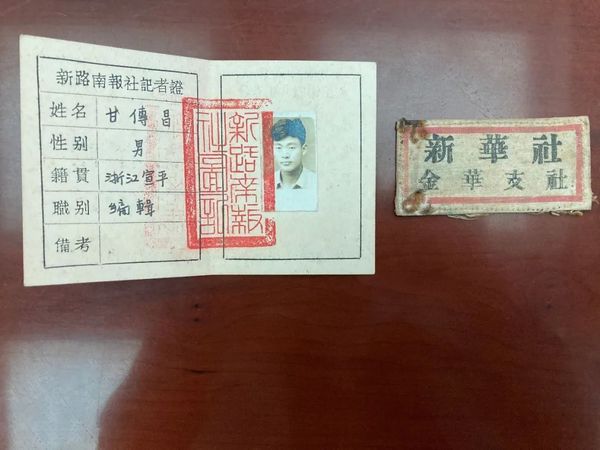 新路南報社記者證
姓名 甘傳昌
性别 男
籍貫 浙江宣平
職别 编輯
備考
新路南報
社圖記
新華社
金華支社